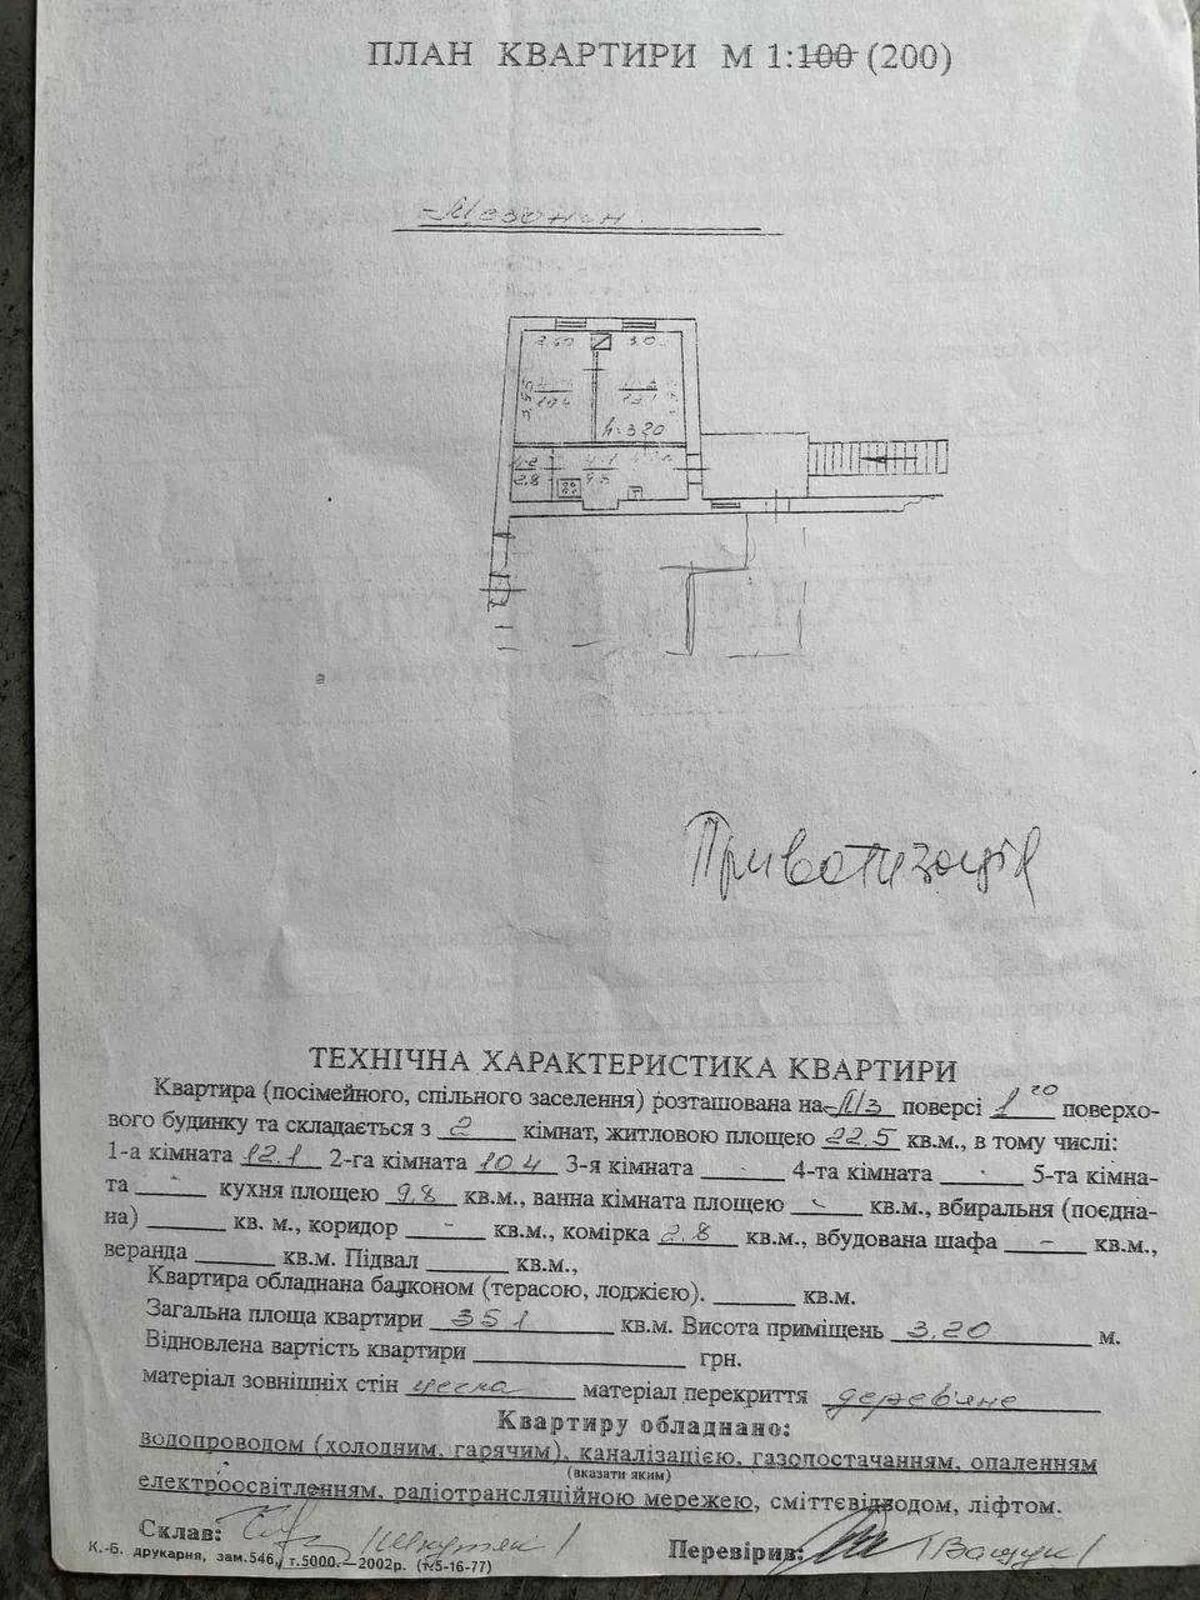 ПЛАН КВАРТИРИ М 1:100 (200)
Мезонін
2.60 3.0
10.4 12.1
h=3.20
4-2 4-1
2.8 9.8
Приватизація
ТЕХНІЧНА ХАРАКТЕРИСТИКА КВАРТИРИ
Квартира (посімейного, спільного заселення) розташована на М/з поверсі 1 го поверхо-
вого будинку та складається з 2 кімнат, житловою площею 22.5 кв.м., в тому числі:
1-а кімната 12.1 2-га кімната 10.4 3-я кімната 4-та кімната 5-та кімна-
та - кухня площею 9.8 кв.м., ванна кімната площею кв.м., вбиральня (поєдна-
на) кв. м., коридор - кв.м., комірка 2.8 кв.м., вбудована шафа - кв.м.,
веранда кв.м. Підвал кв.м.,
Квартира обладнана балконом (терасою, лоджією). кв.м.
Загальна площа квартири 35.1 кв.м. Висота приміщень 3.20 м.
Відновлена вартість квартири грн.
матеріал зовнішніх стін цегла матеріал перекриття дерев'яне
Квартиру обладнано:
водопроводом (холодним, гарячим), каналізацією, газопостачанням, опаленням
(вказати яким)
електроосвітленням, радіотрансляційною мережею, сміттєвідводом, ліфтом.
Склав: Перевірив:
К.-Б. друкарня, зам.546, т.5000.—2002р. (т.5-16-77)